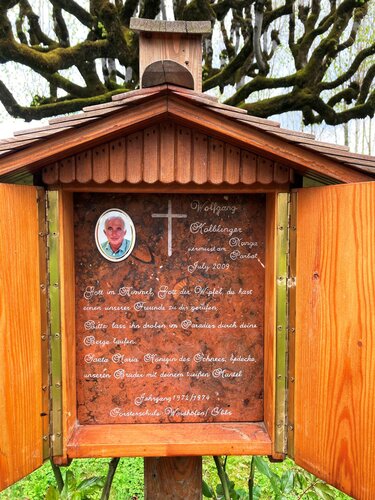 Wolfgang
Kölblinger
vermisst am Nanga
Parbat
July 2009
Gott im Himmel, Gott der Gipfel, du hast
einen unserer Freunde zu dir gerufen.
Bitte lass ihn droben im Paradies durch deine
Berge laufen.
Santa Maria Königin des Schnees, bedecke,
unseren Bruder mit deinem weißen Mantel
Jahrgang 1972/1974
Forsterschule Waidhofen/Ybbs